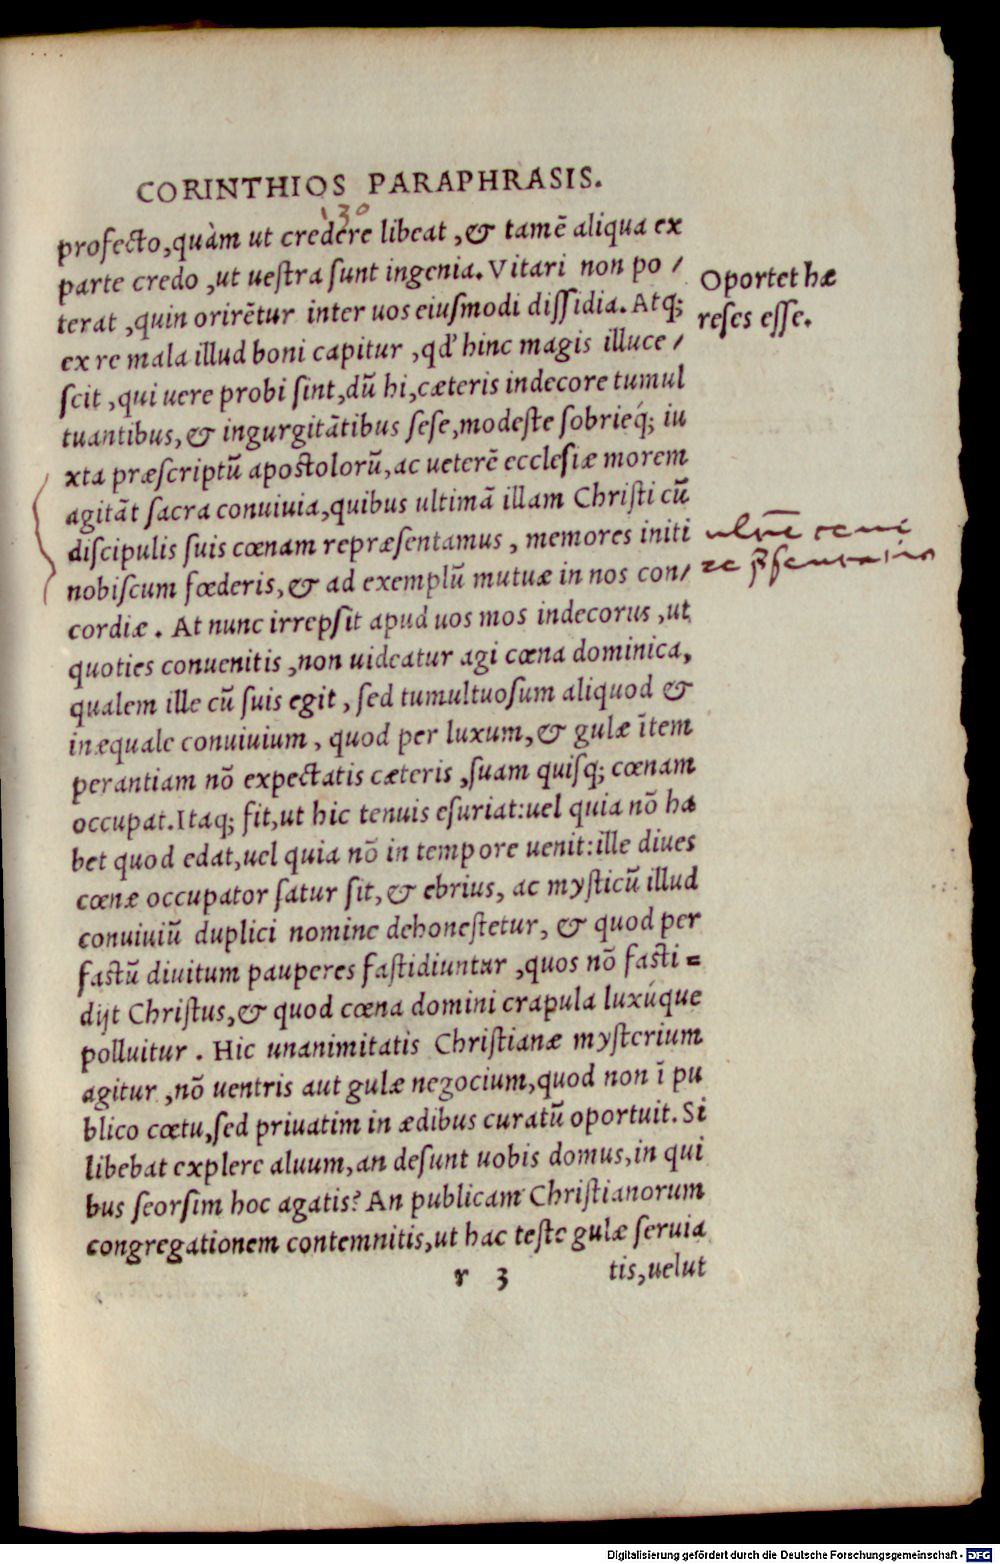 CORINTHIOS PARAPHRASIS.
130
profecto,quàm ut credere libeat ,& tamē aliqua ex
parte credo ,ut uestra sunt ingenia. Vitari non po /
terat ,quin orirētur inter uos eiusmodi dissidia. Atq;
ex re mala illud boni capitur ,qđ hinc magis illuce /
scit ,qui uere probi sint,dū hi,cæteris indecore tumul
tuantibus,& ingurgitātibus sese,modeste sobrieq́; iu
xta præscriptū apostolorū,ac ueterē ecclesiæ morem
agitāt sacra conuiuia,quibus ultimā illam Christi cū
discipulis suis cœnam repræsentamus , memores initi
nobiscum fœderis,& ad exemplū mutuæ in nos con/
cordiæ . At nunc irrepsit apud uos mos indecorus ,ut
quoties conuenitis ,non uideatur agi cœna dominica,
qualem ille cū suis egit , sed tumultuosum aliquod &
inæquale conuiuium , quod per luxum,& gulæ ītem
perantiam nō expectatis cæteris ,suam quisq; cœnam
occupat.Itaq; fit,ut hic tenuis esuriat:uel quia nō ha
bet quod edat,uel quia nō in tempore uenit:ille diues
cœnæ occupator satur sit,& ebrius, ac mysticū illud
conuiuiū duplici nomine dehonestetur, & quod per
fastū diuitum pauperes fastidiuntur ,quos nō fasti=
dijt Christus,& quod cœna domini crapula luxúque
polluitur . Hic unanimitatis Christianæ mysterium
agitur ,nō uentris aut gulæ negocium,quod non ī pu
blico cœtu,sed priuatim in ædibus curatū oportuit. Si
libebat explere aluum,an desunt uobis domus,in qui
bus seorsim hoc agatis? An publicam Christianorum
congregationem contemnitis,ut hac teste gulæ seruia
r 3 tis,uelut
Oportet hæ
reses esse.
Digitalisierung gefördert durch die Deutsche Forschungsgemeinschaft - DFG